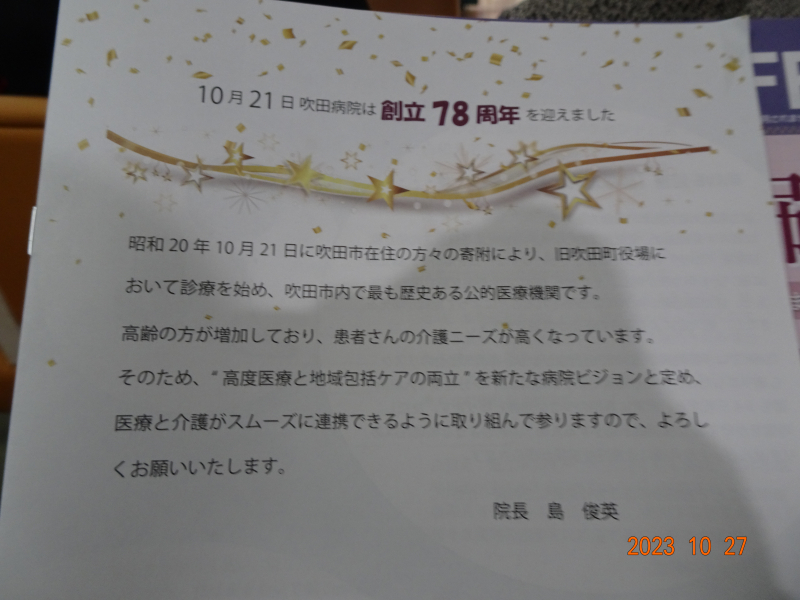 10月21日吹田病院は創立78周年を迎えました
昭和20年10月21日に吹田市在住の方々の寄附により、旧吹田町役場に
おいて診療を始め、吹田市内で最も歴史ある公的医療機関です。
高齢の方が増加しており、患者さんの介護ニーズが高くなっています。
そのため、“高度医療と地域包括ケアの両立”を新たな病院ビジョンと定め、
医療と介護がスムーズに連携できるように取り組んで参りますので、よろし
くお願いいたします。
院長 島 俊英
2023 10 27